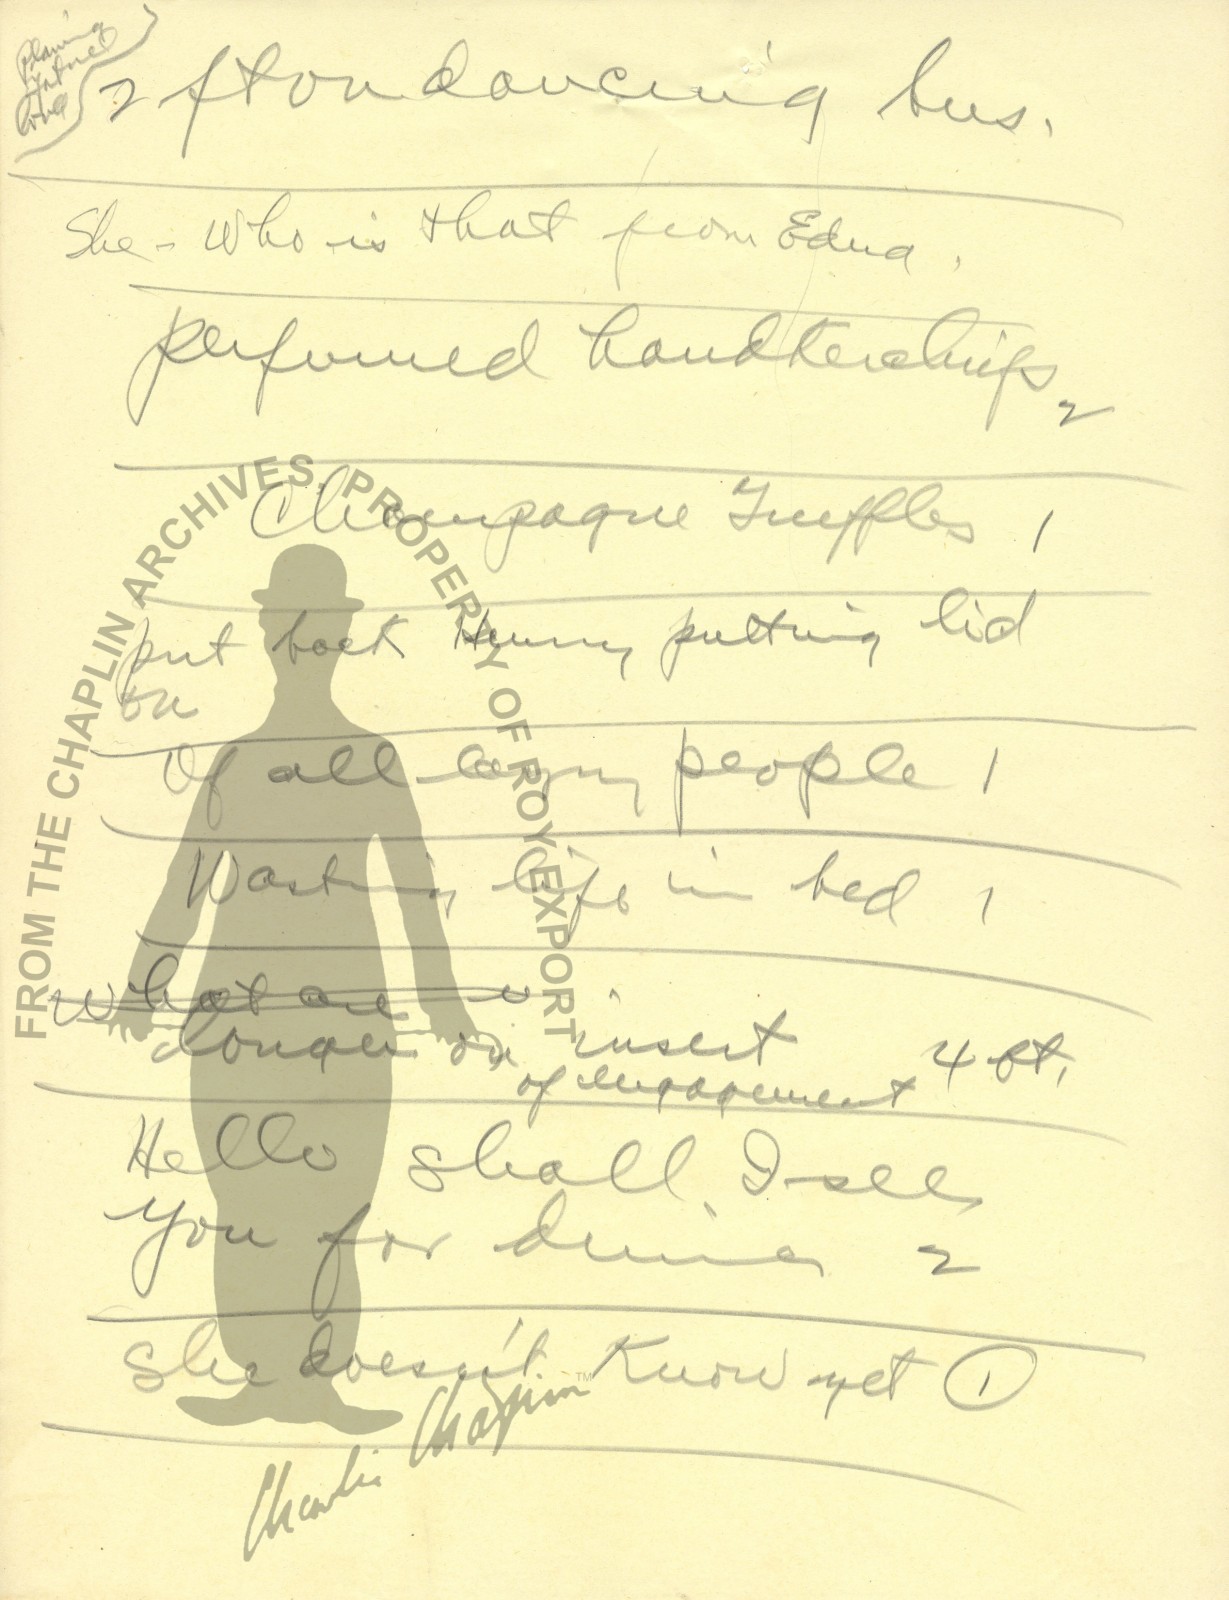 2 ft on dancing bus.
She - Who is that from Edna.
perfumed handkerchiefs 2
Champagne Truffles 1
put back Henry putting lid
on
Of all lazy people 1
Wasting life in bed 1
What are
longer on insert 4 ft.
of engagement
Hello shall I see
you for dinner 2
She doesn't know yet 1
FROM THE CHAPLIN ARCHIVES, PROPERTY OF ROY EXPORT
Charlie Chaplin™